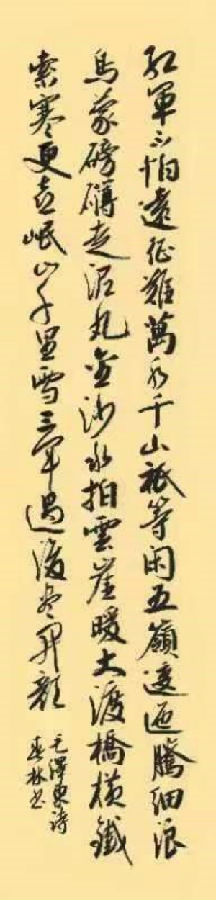 红軍不怕遠征難萬水千山祇等闲五嶺逶迤騰细浪
烏蒙磅礴走泥丸金沙水拍雲崖暖大渡橋横鐵
索寒更喜岷山千里雪三軍過後尽开颜
毛澤東詩
春林书